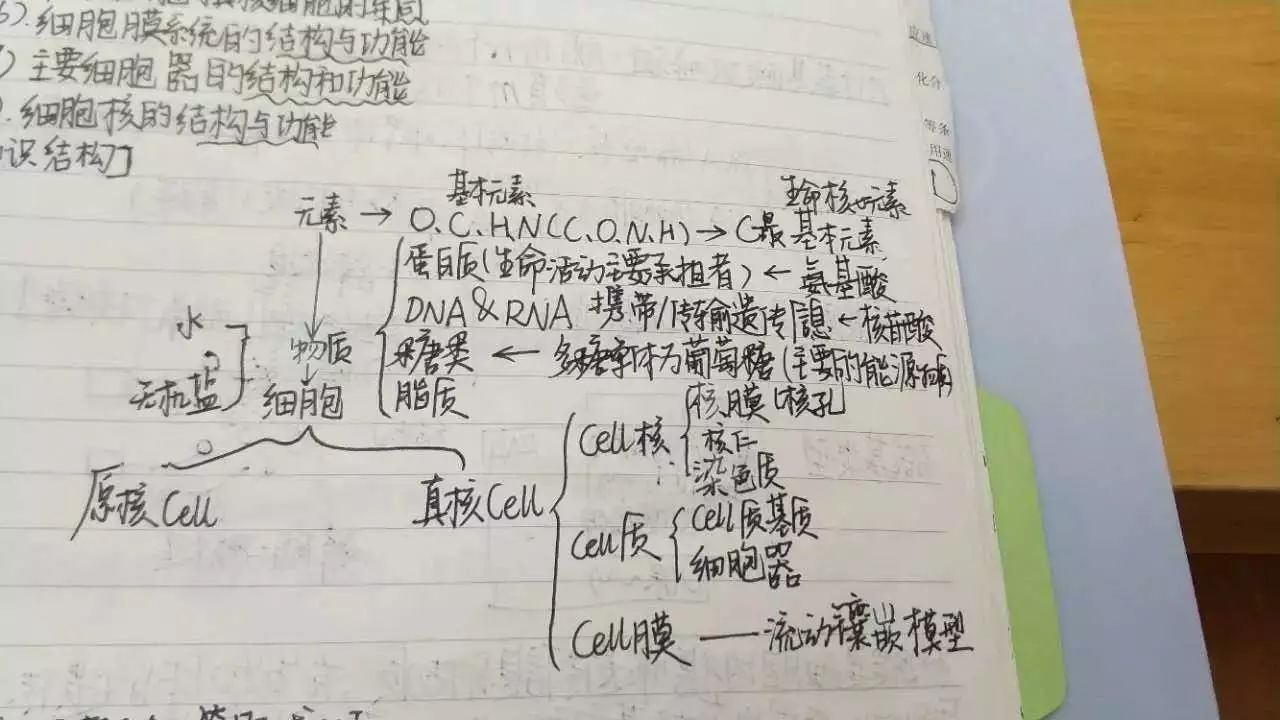 细胞的异同
6).细胞膜系统的结构与功能
)主要细胞器的结构和功能
).细胞核的结构与功能
识结构]
基本元素
生命核心元素
元素→O.C.H.N(C.O.N.H)→C最基本元素
蛋白质(生命活动主要承担者)←氨基酸
DNA&RNA 携带/传输遗传信息←核苷酸
水
物质
糖类←多糖单体为葡萄糖(主要的能源物质)
无机盐
细胞
脂质
原核Cell
真核Cell
Cell核
核膜 核孔
核仁
染色质
Cell质
Cell质基质
细胞器
Cell膜——流动镶嵌模型
化合
等条
用途